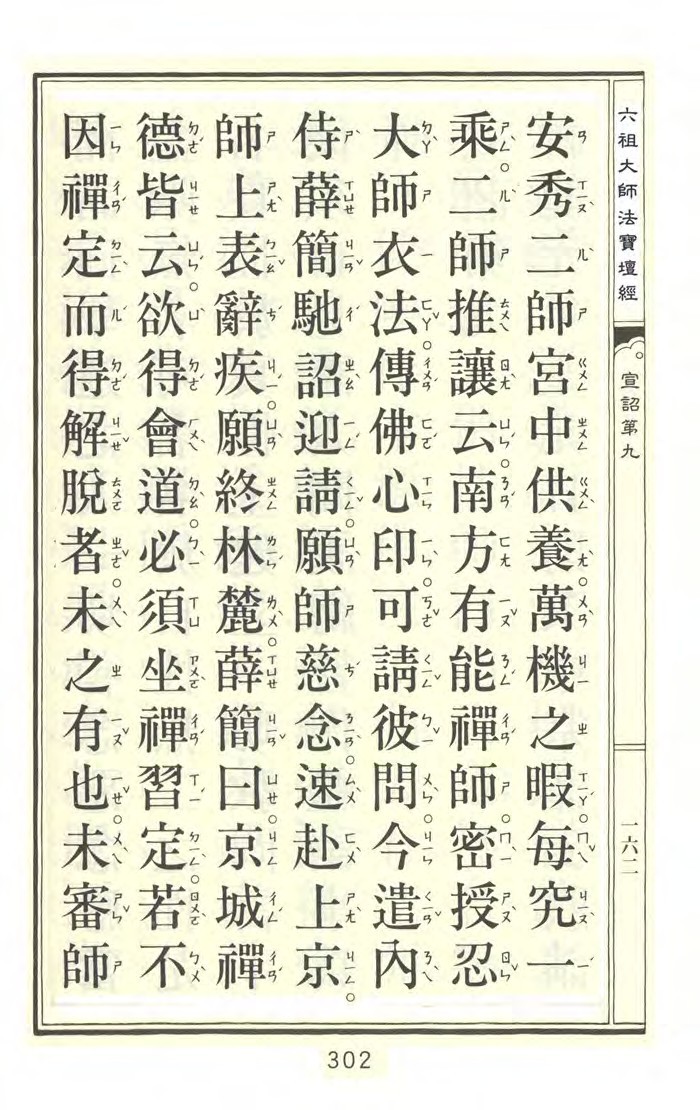 六祖大師法寶壇經
宣詔第九
一六二
安秀二師宮中供養萬機之暇。每究一
乘。二師推讓云。南方有能禪師。密授忍
大師衣法。傳佛心印。可請彼問。今遣內
侍薛簡馳詔迎請。願師慈念。速赴上京。
師上表辭疾。願終林麓。薛簡曰京城禪
德皆云。欲得會道。必須坐禪習定。若不
因禪定而得解脫者。未之有也。未審師
302